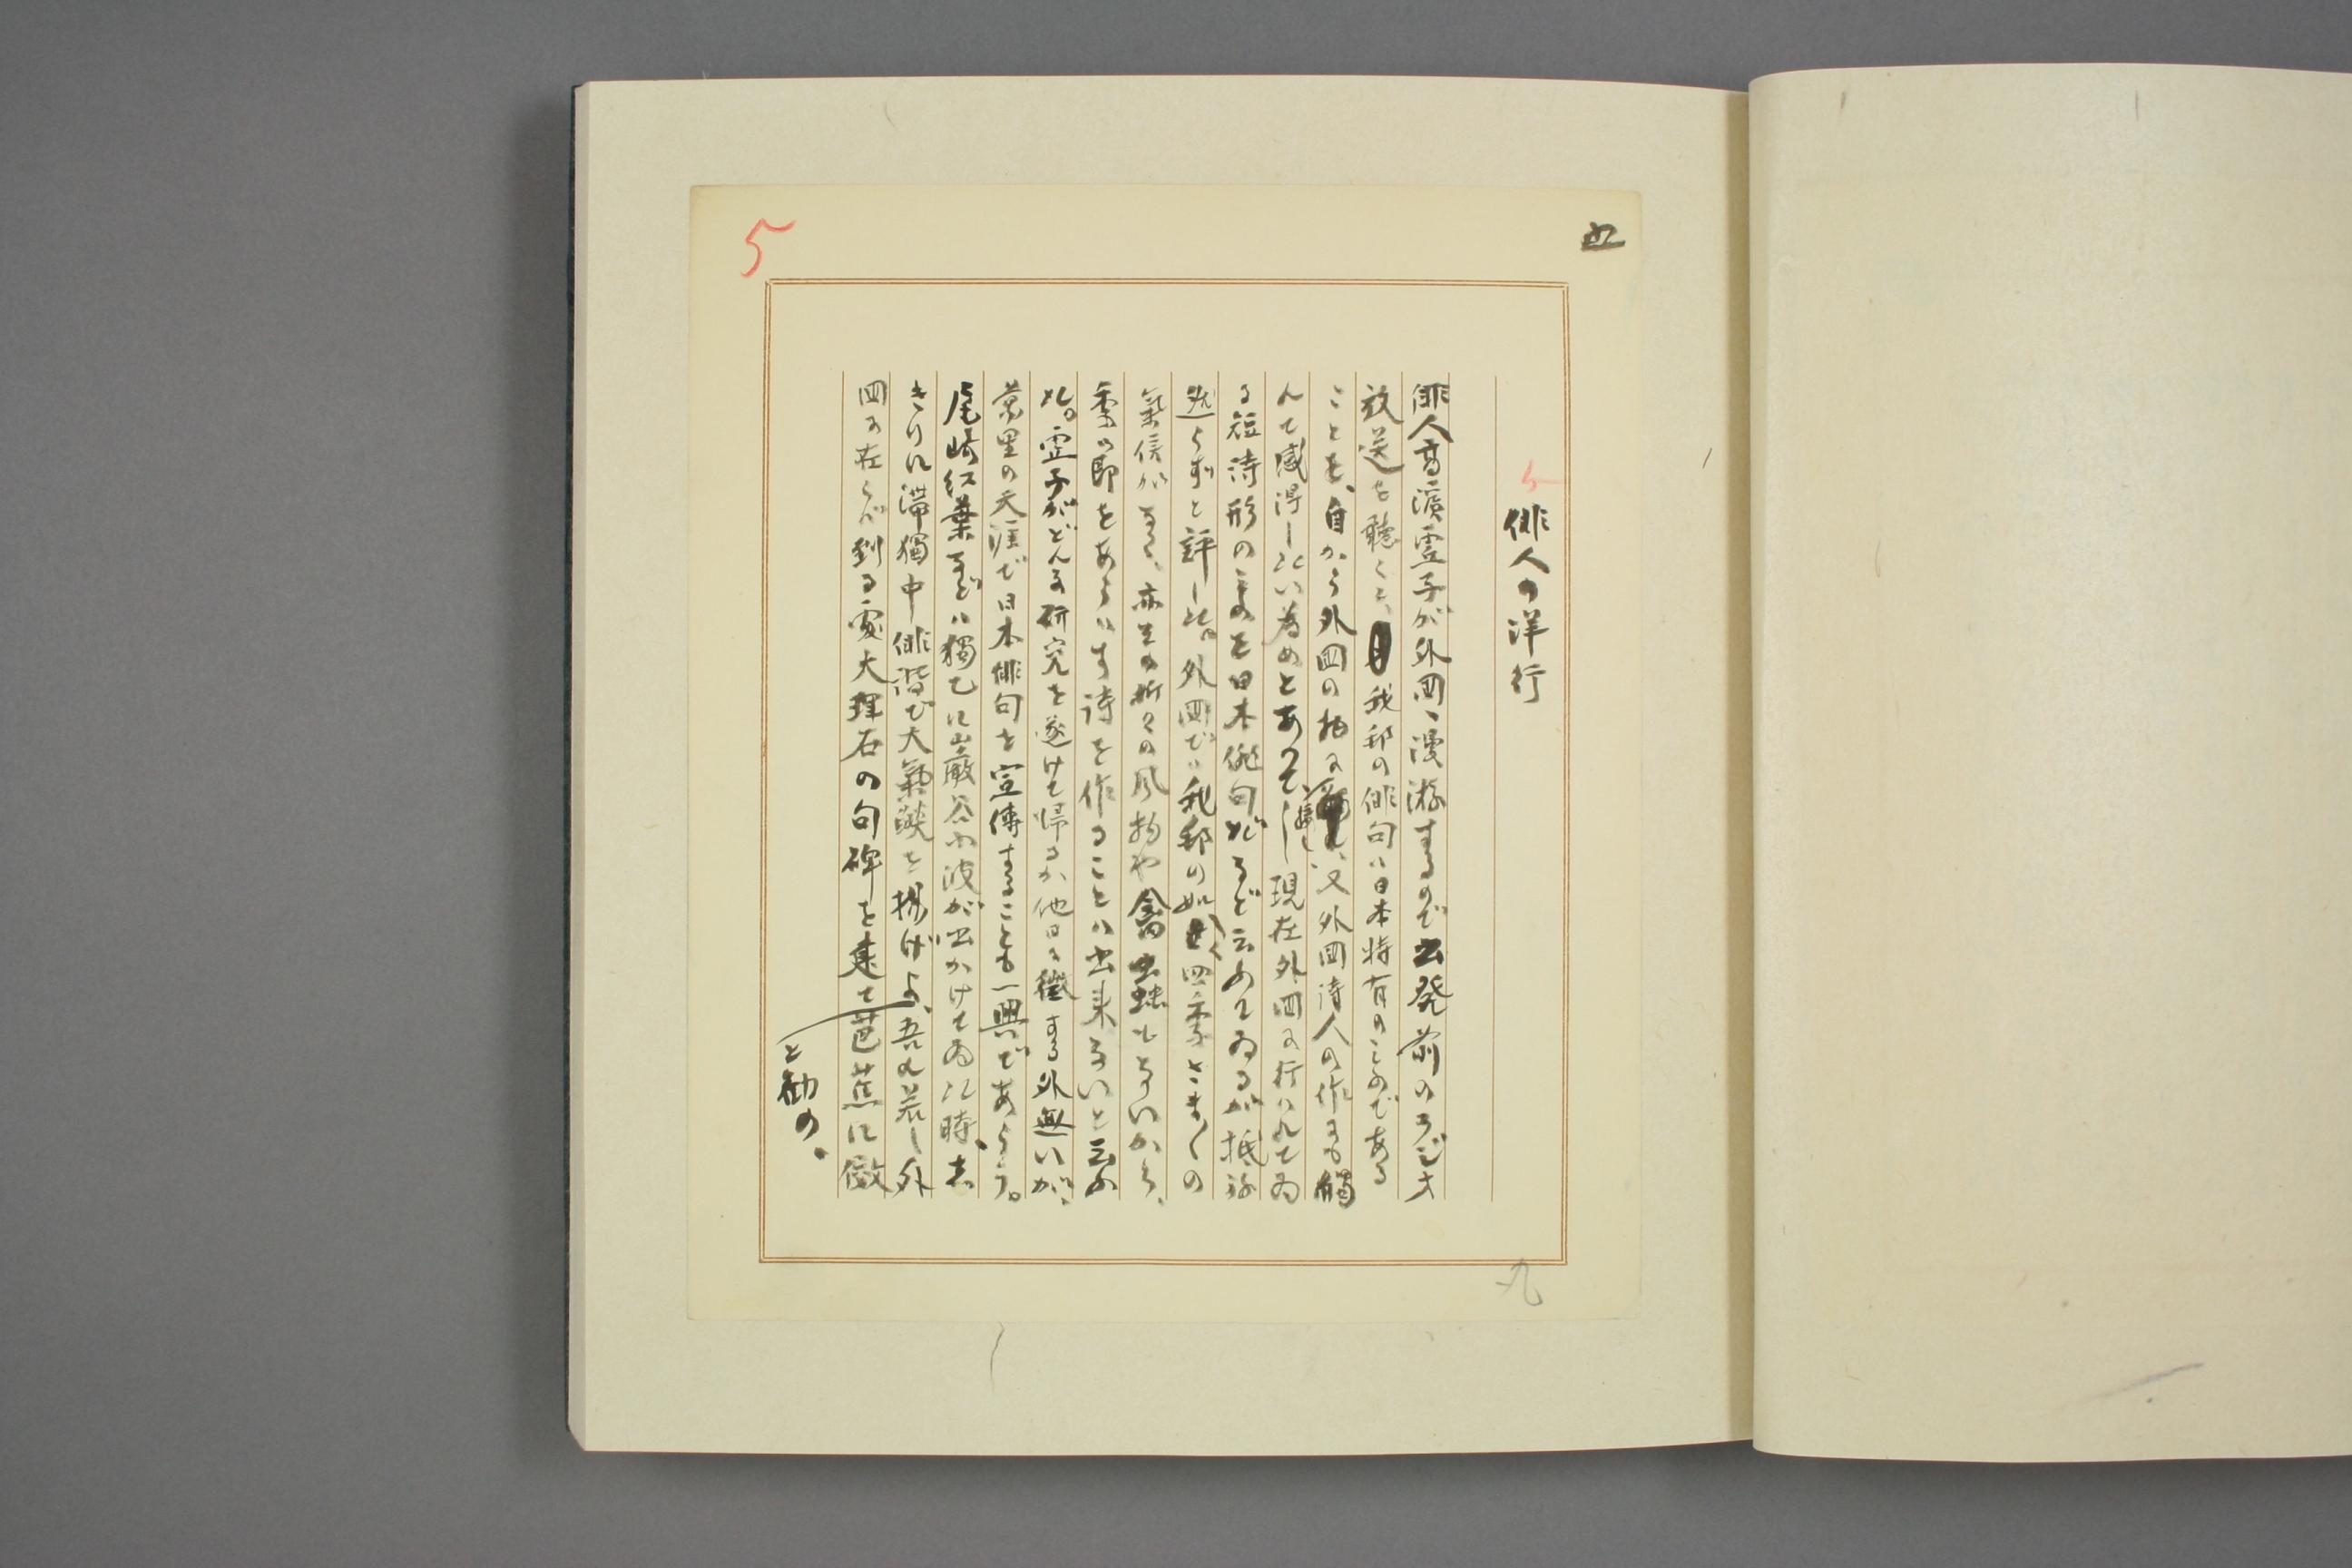 五
5
俳人の洋行
俳人高濱虚子が外国へ漫游するので出発前のラジオ
放送を聴くと、我邦の俳句は日本特有のものである
ことを、自から外国の地に、又外国詩人の作にも觸
れて感得したい為めとあつて、現在外国に行はれてゐ
る短詩形のものを日本俳句だなど云ふてゐるが抵
らずと評した。外国では我邦の如く四季とき〲の
氣候がなく、亦其の折々の風物や禽虫もないから、
季に即をあらはす詩を作ることは出来ないと云ふ
た。虚子がどんな研究を遂けて帰るか他日に徴する外無いが、
萬里の天涯で日本俳句を宣傳することも一興であらう。
尾崎紅葉などは獨乙に巌谷小波が出かけてゐた時、志
きりに滞獨中俳諧で大氣燄を揚げよ、吾れ若し外
国に在らば到る處大理石の句碑を建て芭蕉に倣
と勧め、
九